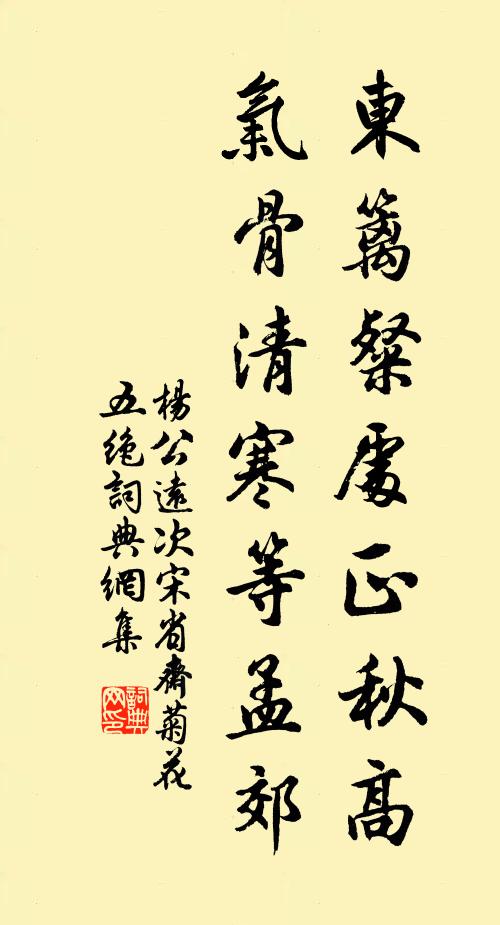 東籬粲處正秋高
氣骨清寒等孟郊
楊公遠次宋省齋菊花
五絶詞典網集
詞典網印